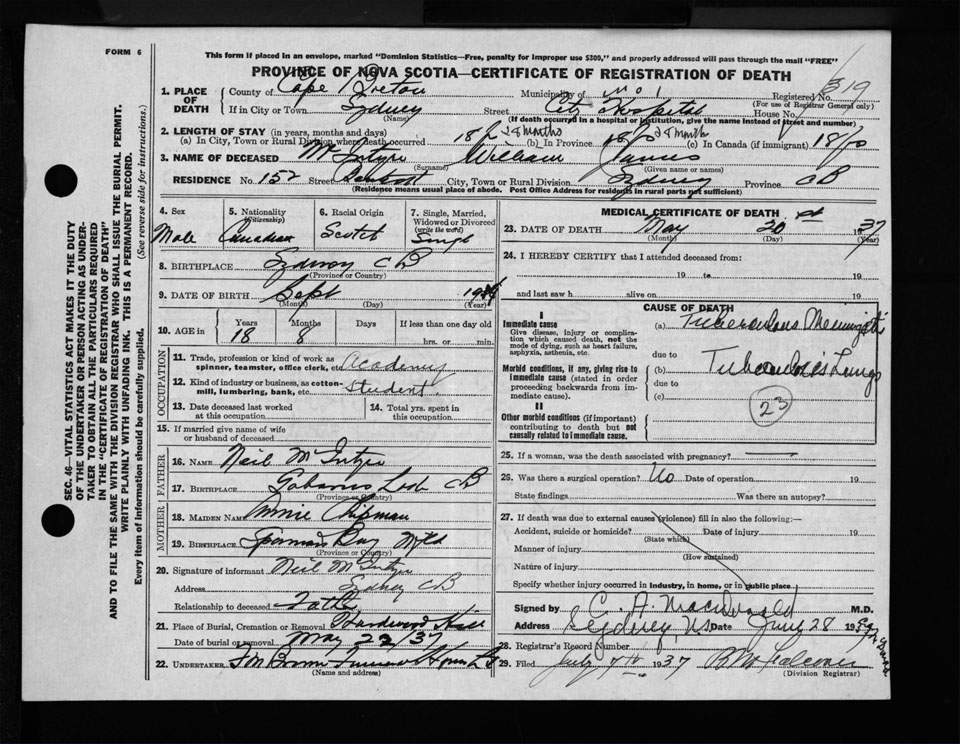 FORM 6
This form if placed in an envelope, marked "Dominion Statistics—Free, penalty for improper use $300," and properly addressed will pass through the mail "FREE"
PROVINCE OF NOVA SCOTIA—CERTIFICATE OF REGISTRATION OF DEATH
SEC. 46—VITAL STATISTICS ACT MAKES IT THE DUTY
OF THE UNDERTAKER OR PERSON ACTING AS UNDER-
TAKER TO OBTAIN ALL THE PARTICULARS REQUIRED
IN THE "CERTIFICATE OF REGISTRATION OF DEATH"
AND TO FILE THE SAME WITH THE DIVISION REGISTRAR WHO SHALL ISSUE THE BURIAL PERMIT.
WRITE PLAINLY WITH UNFADING INK. THIS IS A PERMANENT RECORD.
Every item of information should be carefully supplied. (See reverse side for instructions.)
1. PLACE OF DEATH County of Cape Breton Municipality of Registered No. 319
(For use of Registrar General only)
If in City or Town Sydney Street City Hospital House No.
(Name) (If death occurred in a hospital or institution, give the name instead of street and number)
2. LENGTH OF STAY (in years, months and days)
(a) In City, Town or Rural Division where death occurred 18 8 months (b) In Province 18 8 months (c) In Canada (if immigrant) 18
3. NAME OF DECEASED McIntyre William James
(Surname) (Given name or names)
RESIDENCE No. 152 Street City, Town or Rural Division Sydney Province CB
(Residence means usual place of abode. Post Office Address for residents in rural parts not sufficient)
4. Sex Male
5. Nationality (Citizenship) Canadian
6. Racial Origin Scotch
7. Single, Married, Widowed or Divorced (write the word) Single
8. BIRTHPLACE Sydney CB
(Province or Country)
9. DATE OF BIRTH Sept 19
(Month) (Day) (Year)
10. AGE in Years 18 Months 8 Days If less than one day old hrs. or min.
OCCUPATION
11. Trade, profession or kind of work as spinner, teamster, office clerk, etc. Academy
12. Kind of industry or business, as cotton-mill, lumbering, bank, etc. Student
13. Date deceased last worked at this occupation
14. Total yrs. spent in this occupation
15. If married give name of wife or husband of deceased
FATHER
16. NAME Neil McIntyre
17. BIRTHPLACE Gabarus CB
(Province or Country)
MOTHER
18. MAIDEN NAME Annie Chipman
19. BIRTHPLACE Bay Nfld
(Province or Country)
20. Signature of informant Neil McIntyre
Address Sydney CB
Relationship to deceased Father
21. Place of Burial, Cremation or Removal Hardwood Hill
Date of burial or removal May 22/37
22. UNDERTAKER Funeral Home
(Name and address)
MEDICAL CERTIFICATE OF DEATH
23. DATE OF DEATH May 20 1937
(Month) (Day) (Year)
24. I HEREBY CERTIFY that I attended deceased from:
19 to 19
and last saw h alive on 19
CAUSE OF DEATH
I
Immediate cause (a) Tuberculous Meningitis
Give disease, injury or complication which caused death, not the mode of dying, such as heart failure, asphyxia, asthenia, etc. due to
Morbid conditions, if any, giving rise to immediate cause (stated in order proceeding backwards from immediate cause). (b) Tuberculosis Lungs
due to
(c)
II
23
Other morbid conditions (if important) contributing to death but not causally related to immediate cause.
25. If a woman, was the death associated with pregnancy? —
26. Was there a surgical operation? No Date of operation 19
State findings Was there an autopsy?
27. If death was due to external causes (violence) fill in also the following:—
Accident, suicide or homicide? Date of injury 19
(State which)
Manner of injury
(How sustained)
Nature of injury
Specify whether injury occurred in industry, in home, or in public place
Signed by C. A. MacDonald M.D.
Address Sydney, NS Date 28 19
28. Registrar's Record Number
29. Filed July 1937
(Division Registrar)